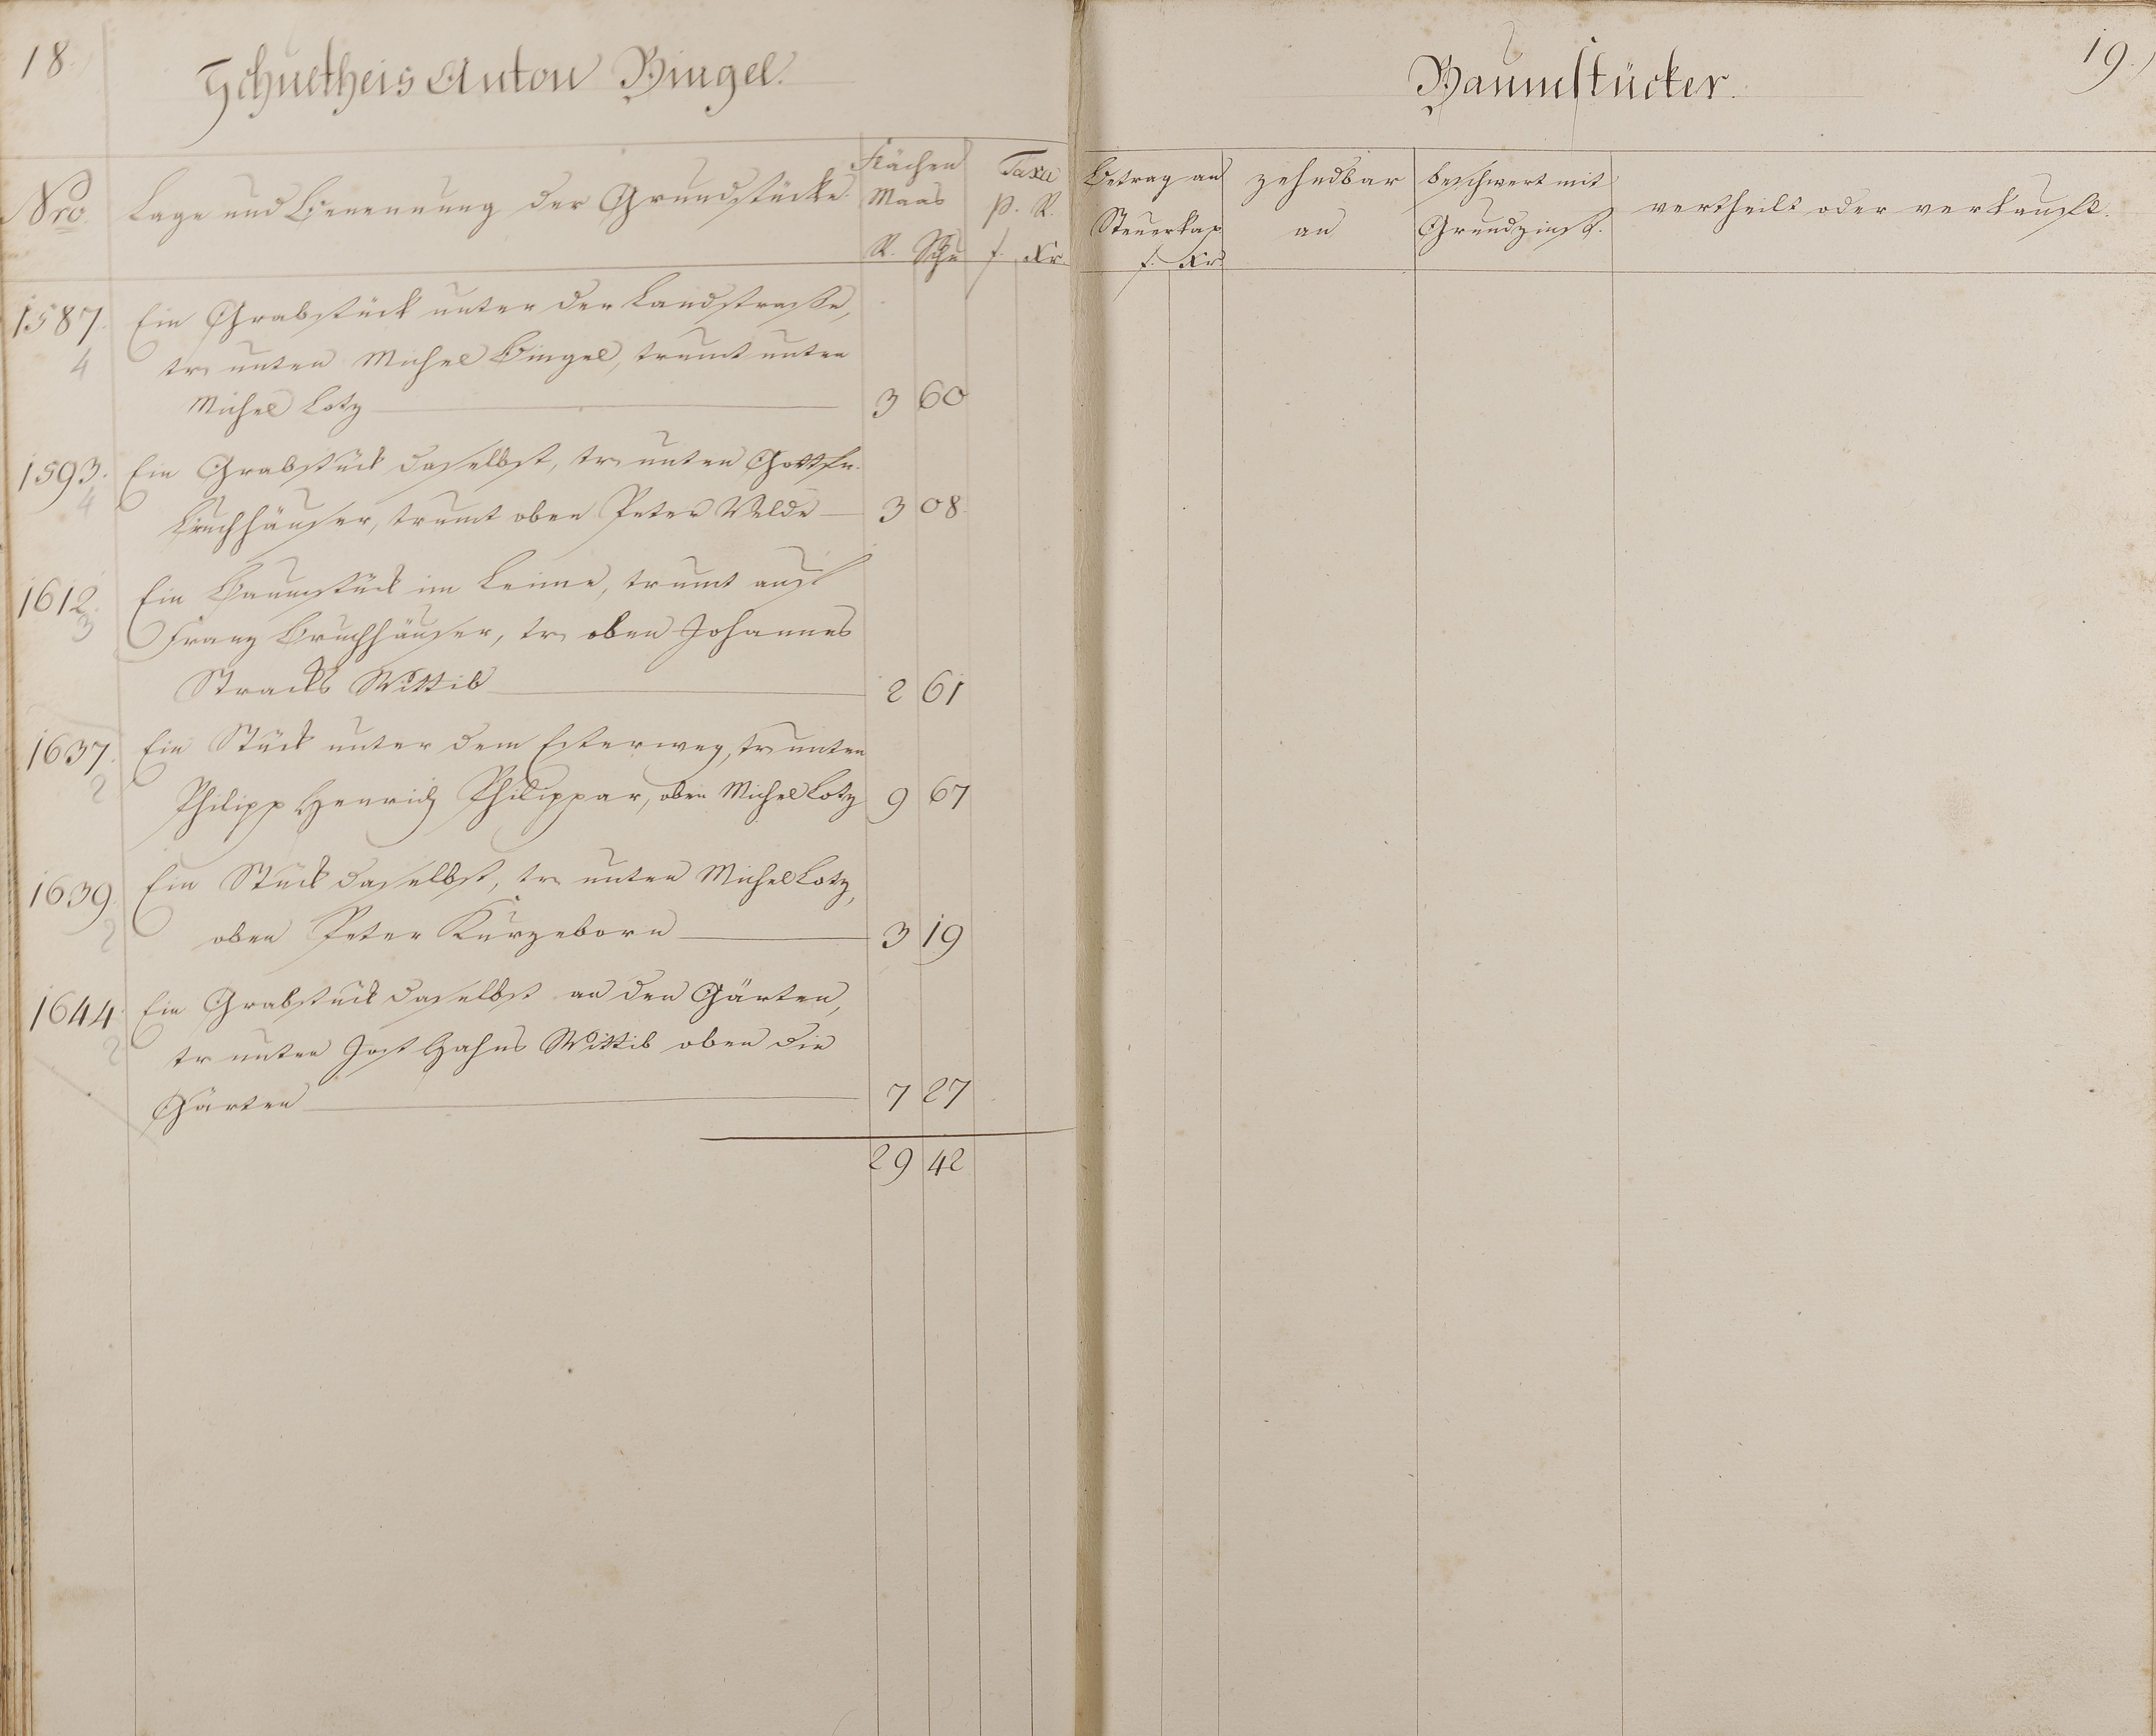 18.
Schultheis Anton Bingel.
Nro
Lage und Benennung der Grundstücke
Flächen
Maas
R. Schu
Taxa
p. R.
f. Xr.
1587.
4
Ein Grabstück unter der Landstrasse,
tr. unten Michel Bingel, trumt unten
Michel Lotz
3 60
1593.
4
Ein Grabstück daselbst, tr. unten Gottfr.
Bruchhäuser, trumt oben Peter Velde
3 08.
1612.
3
Ein Baumstück im Leime, trumt auf
Franz Bruchhäuser, tr. oben Johannes
Stracks Wittib
2 61
1637.
2
Ein Stück unter dem Esterweg, tr. unten
Philipp Henrich Philippar, oben Michel Lotz
9 67
1639.
2
Ein Stück daselbst, tr. unten Michel Lotz,
oben Peter Kurzeborn
3 19
1644.
2
Ein Grabstück daselbst an den Gärten,
tr. unten Jost Hahns Wittib oben die
Gärten
7 27
29 42
19.
Baumstücker.
Betrag an
Steuerkap
f. Xr.
zehndbar
an
beschwert mit
Grundzinß.
vertheilt oder verkauft.